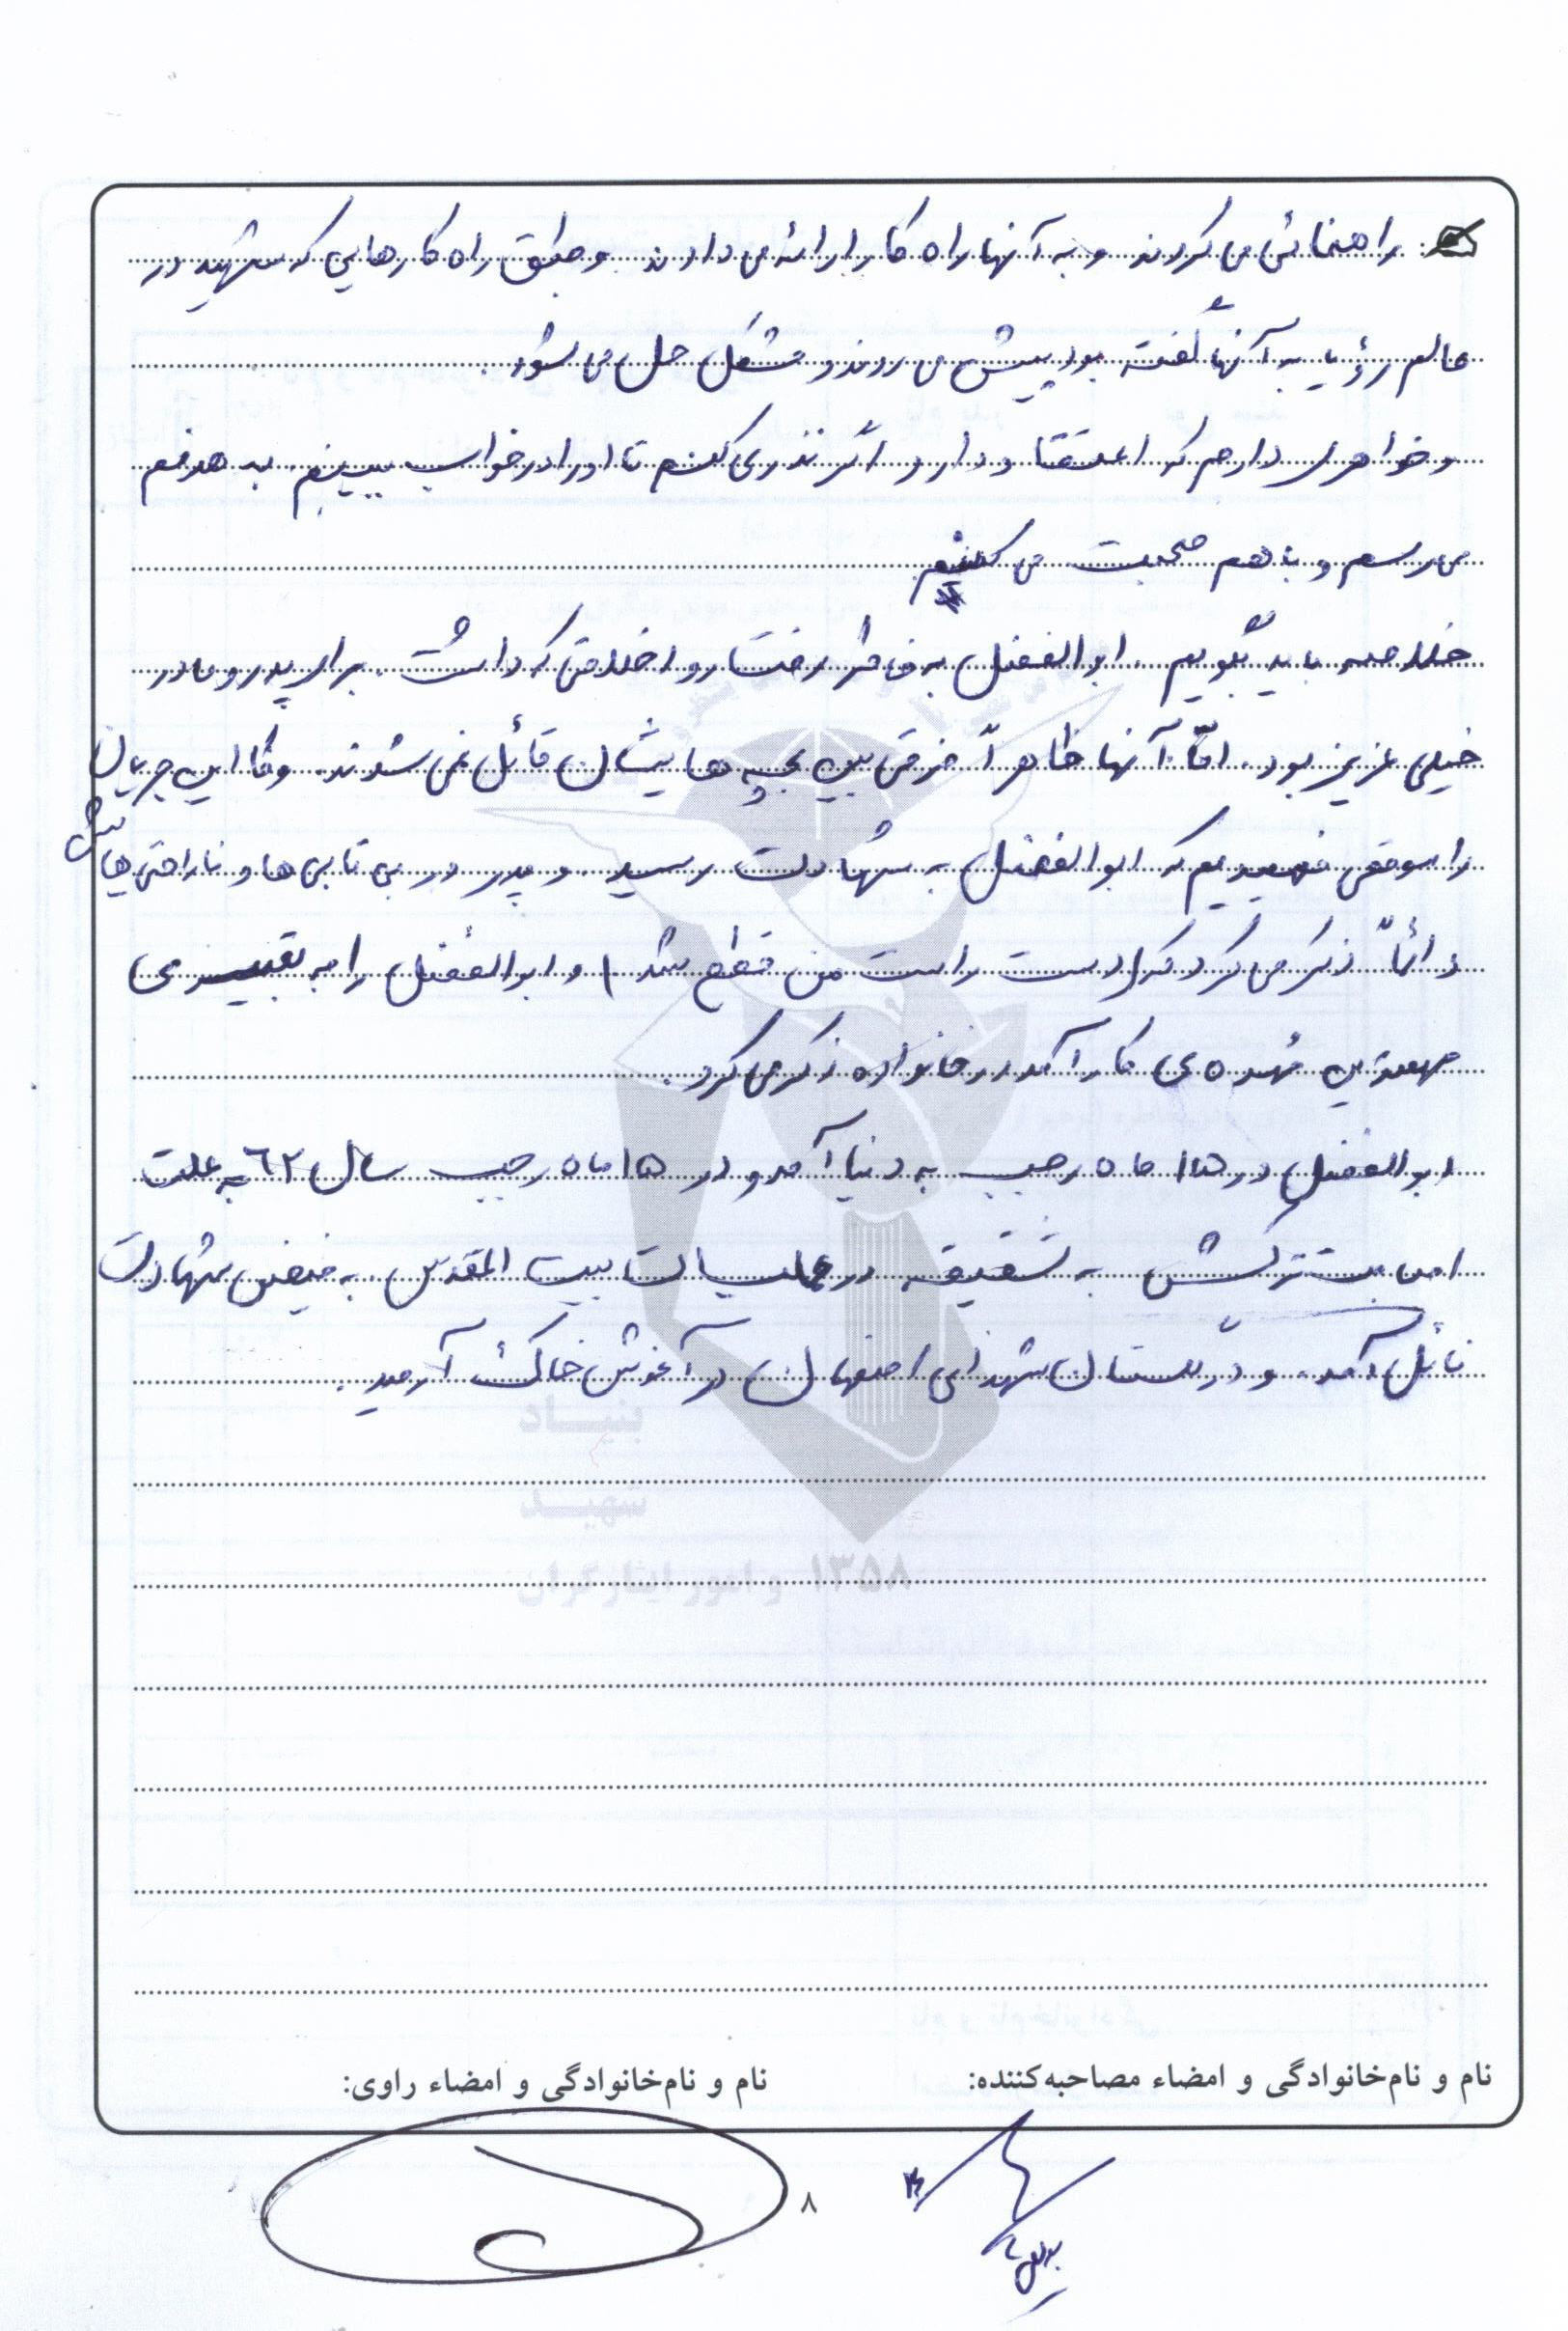 راهنمائی می کردند و به آنها راه کار ارائه می دادند و طبق راه کارهایی که شهید در
عالم رؤیا به آنها گفته بود پیش می روند و مشکل حل می شود.
و خواهری دارم که اعتقاد دارد اگر نذری کنم تا او را در خواب ببینم به هدفم
می رسم و با هم صحبت می کنیم
خلاصه باید بگویم. ابوالفضل به خاطر رفتار و اخلاقی که داشت برای پدر و مادر
خیلی عزیز بود. امّا آنها ظاهراً فرقی بین بچه هایشان قائل نمی شدند. و ما این جریان
را موقعی فهمیدیم که ابوالفضل به شهادت رسید. و پدر در بی تابی ها و ناراحتی هایش
دائماً ذکر می کرد که (دست راست من قطع شد) و ابوالفضل را به تعبیری
مهمترین مهره ی کارآمد در خانواده ذکر می کرد.
ابوالفضل در ۱۵ ماه رجب به دنیا آمد و در ۱۵ ماه رجب سال ۶۲ به علت
اصابت ترکش به شقیقه در عملیات بیت المقدس به فیض شهادت
نائل آمد. و در گلستان شهدای اصفهان در آغوش خاک آرمید.
بنیاد
شهید
و امور ایثارگران ۱۳۵۸
نام و نام‌خانوادگی و امضاء مصاحبه‌کننده:
نام و نام‌خانوادگی و امضاء راوی:
۸